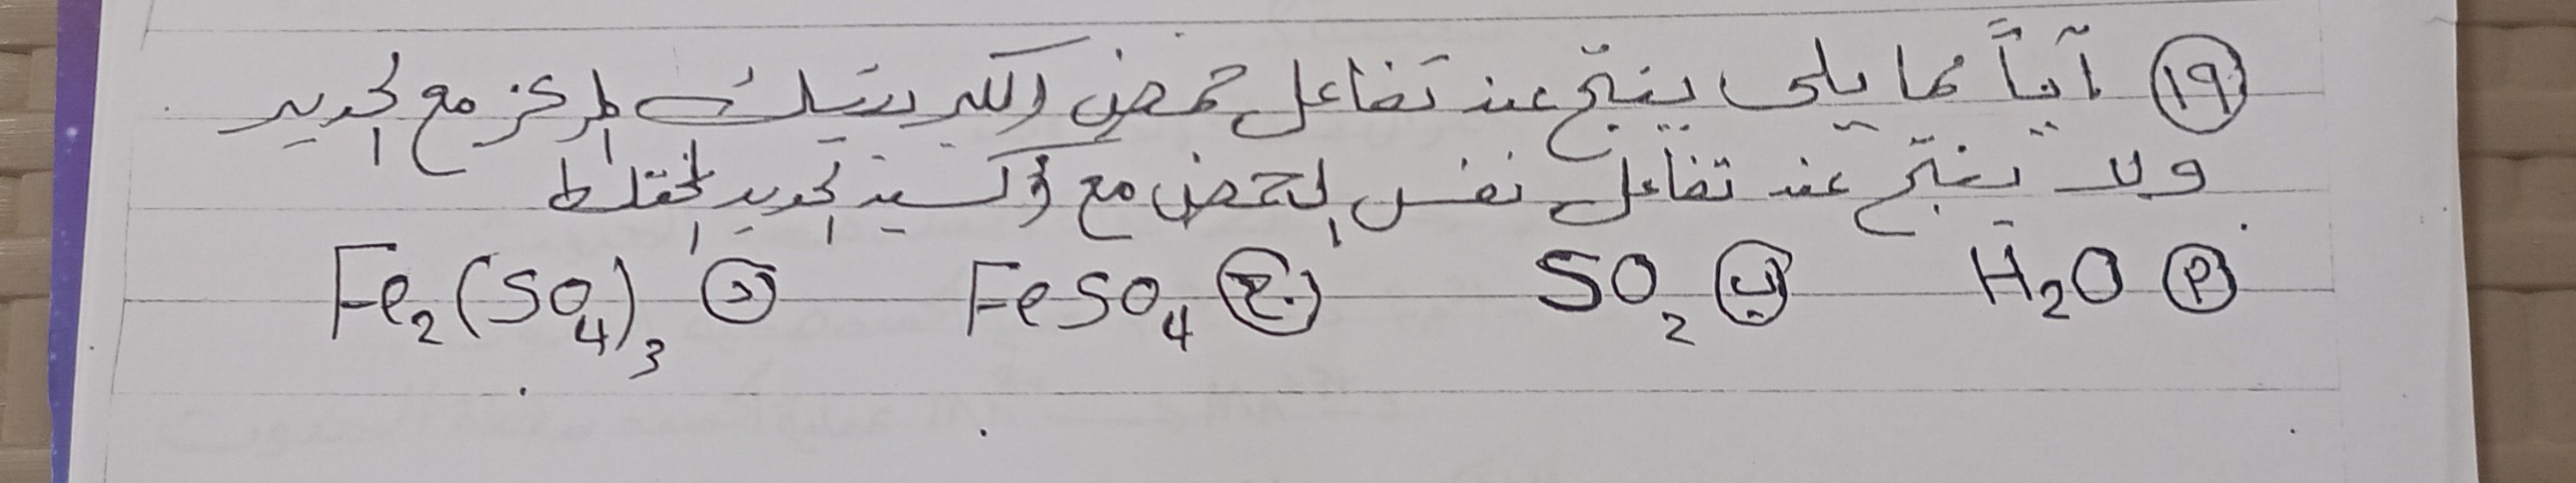 ١٩ أياً مما يلى ينتج عند تفاعل حمض الكبريتيك المركز مع الحديد
ولا ينتج عند تفاعل نفس الحمض مع أكسيد الحديد المختلط .
أ H₂O ب SO₂ ج FeSO₄ د Fe₂(SO₄)₃